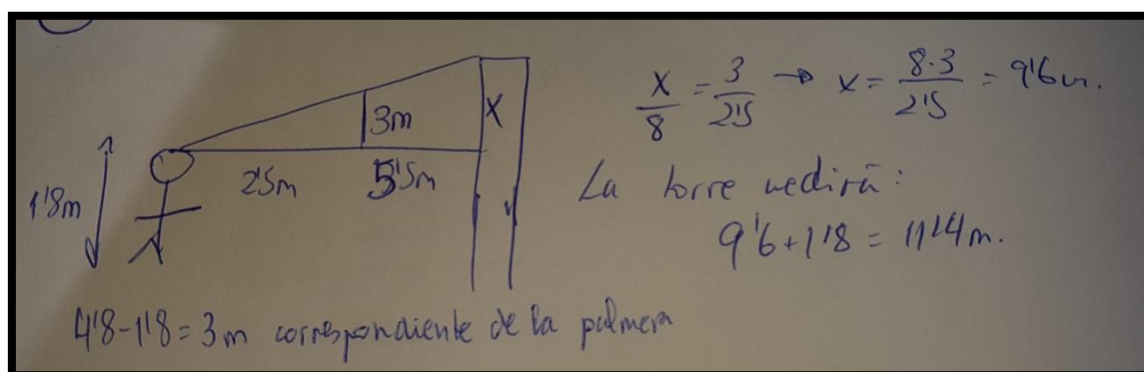 3m
X
2'5m
5'5m
1'8m
X/8 = 3/2'5 → x = 8·3/2'5 = 9'6m.
La torre medirá:
9'6+1'8 = 11'4m.
4'8-1'8=3m correspondiente de la palmera